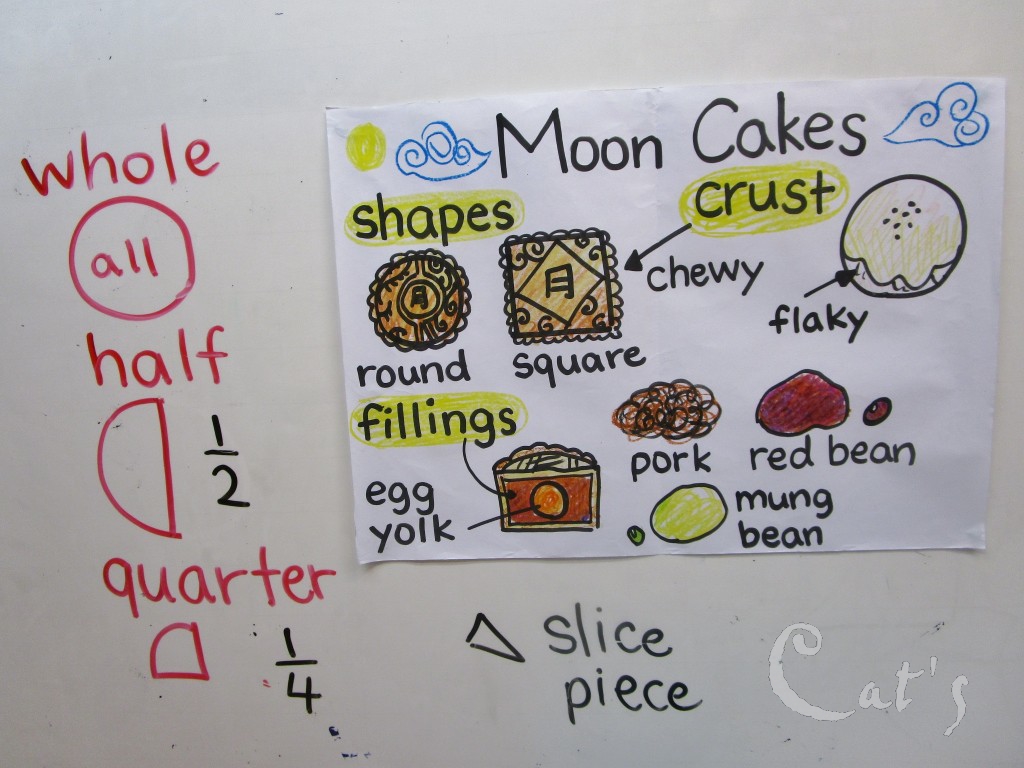 whole
all
half
1
2
quarter
1
4
Moon Cakes
shapes
月
月
round
square
crust
chewy
flaky
fillings
egg
yolk
pork
red bean
mung
bean
slice
piece
Cat's